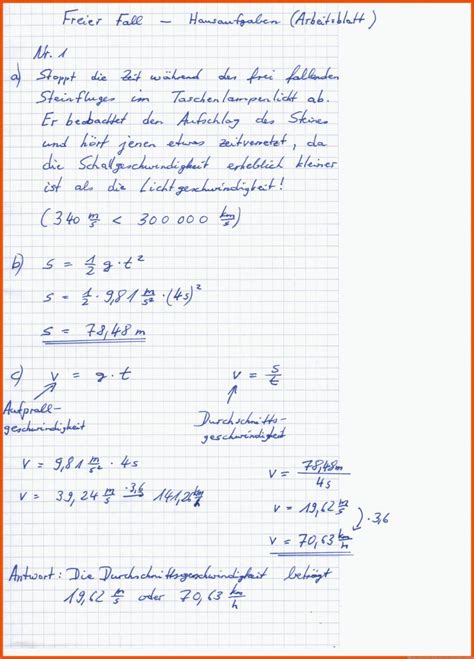 Freier Fall – Hausaufgaben (Arbeitsblatt)
Nr. 1
a) Stoppt die Zeit während des frei fallenden
Steinfluges im Taschenlampenlicht ab.
Er beobachtet den Aufschlag des Steines
und hört jenen etwas zeitversetzt, da
die Schallgeschwindigkeit erheblich kleiner
ist als die Lichtgeschwindigkeit!
(340 m/s < 300 000 km/s)
b) s = 1/2 g · t²
s = 1/2 · 9,81 m/s² · (4s)²
s = 78,48 m
c) v = g · t
Aufprall-
geschwindigkeit
v = 9,81 m/s² · 4s
v = 39,24 m/s ·3,6 141,26 km/h
v = s/t
Durchschnitts-
geschwindigkeit
v = 78,48m/4s
v = 19,62 m/s
·3,6
v = 70,63 km/h
Antwort: Die Durchschnittsgeschwindigkeit beträgt
19,62 m/s oder 70,63 km/h